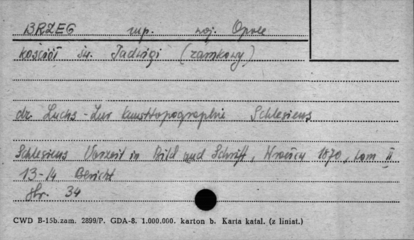 BRZEG rup. woj. Opole
kościół św. Jadwigi (zamkowy)
dr. Luchs - Zur Kunsttopographie Schlesiens
Schlesiens Vorzeit in Bild und Schrift, Wrocław 1870, tom II
13-14 Bericht
str. 34
CWD B-15b.zam. 2899/P. GDA-8. 1.000.000. karton b. Karta katal. (z liniat.)